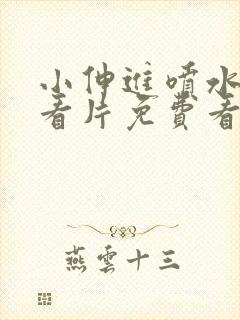 小伸进喷水
看片免費看
燕雲十三